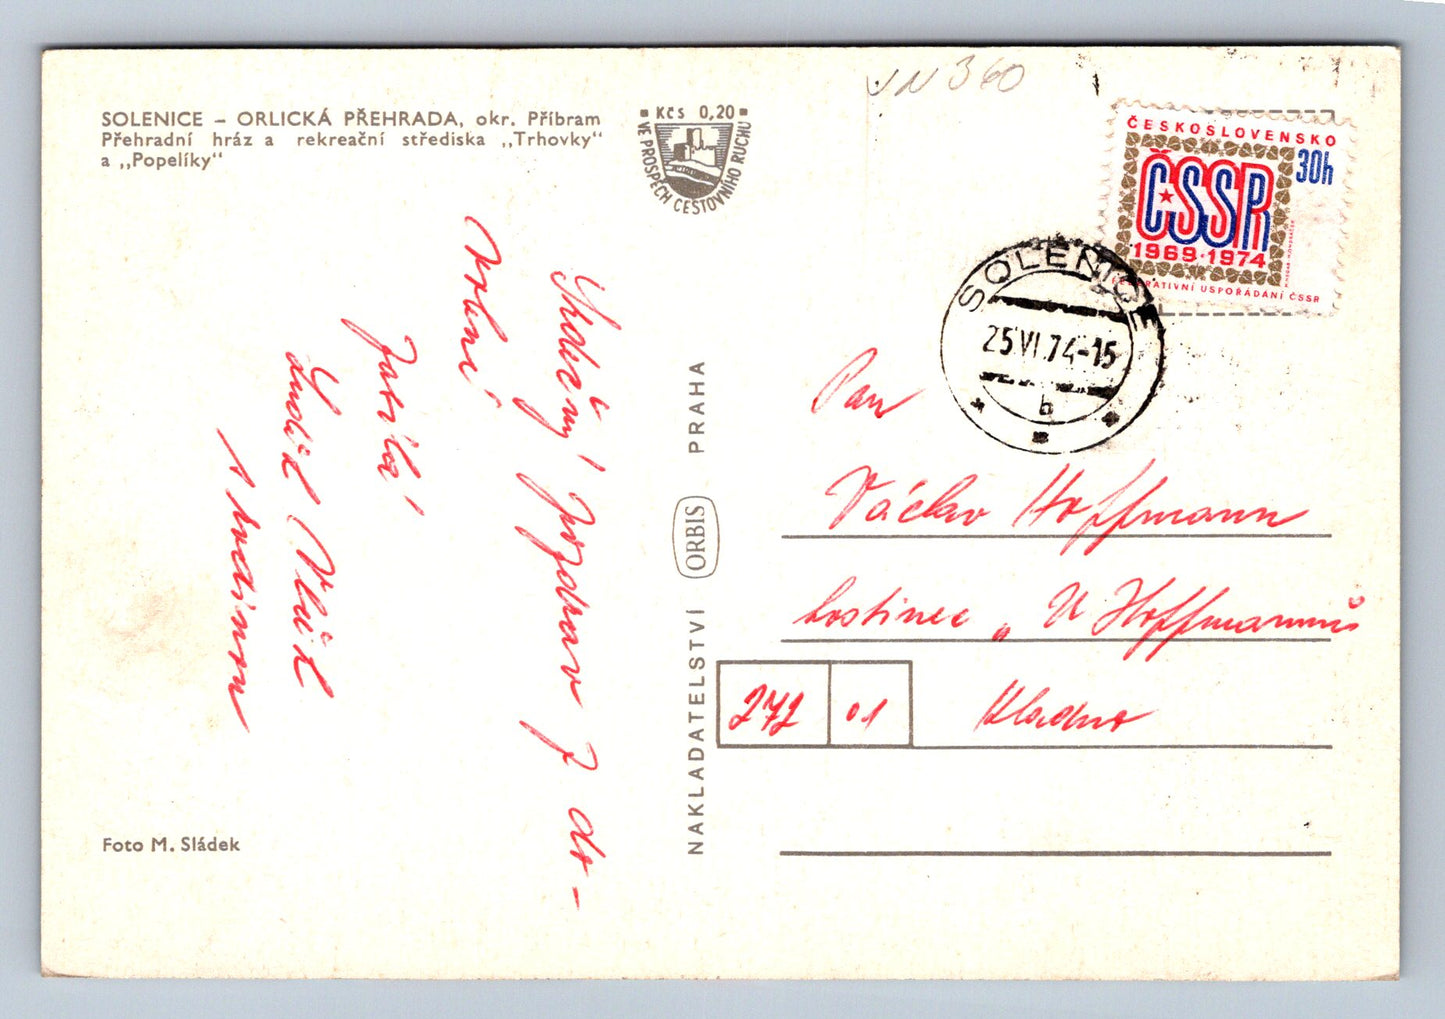 SOLENICE – ORLICKÁ PŘEHRADA, okr. Příbram
Přehradní hráz a rekreační střediska „Trhovky“
a „Popelíky“
Kčs 0,20
VE PROSPĚCH CESTOVNÍHO RUCHU
Srdečný pozdrav z do-
volení
Ludík Vlček
s rodinou
Foto M. Sládek
NAKLADATELSTVÍ ORBIS PRAHA
VN 360
ČESKOSLOVENSKO
30h
ČSSR
1969·1974
RATIVNÍ USPOŘÁDÁNÍ ČSSR
SOLENICE
25.VI.74-15
b
Pan
Václav Hoffmann
hostinec „U Hoffmannů
272 01 Kladno